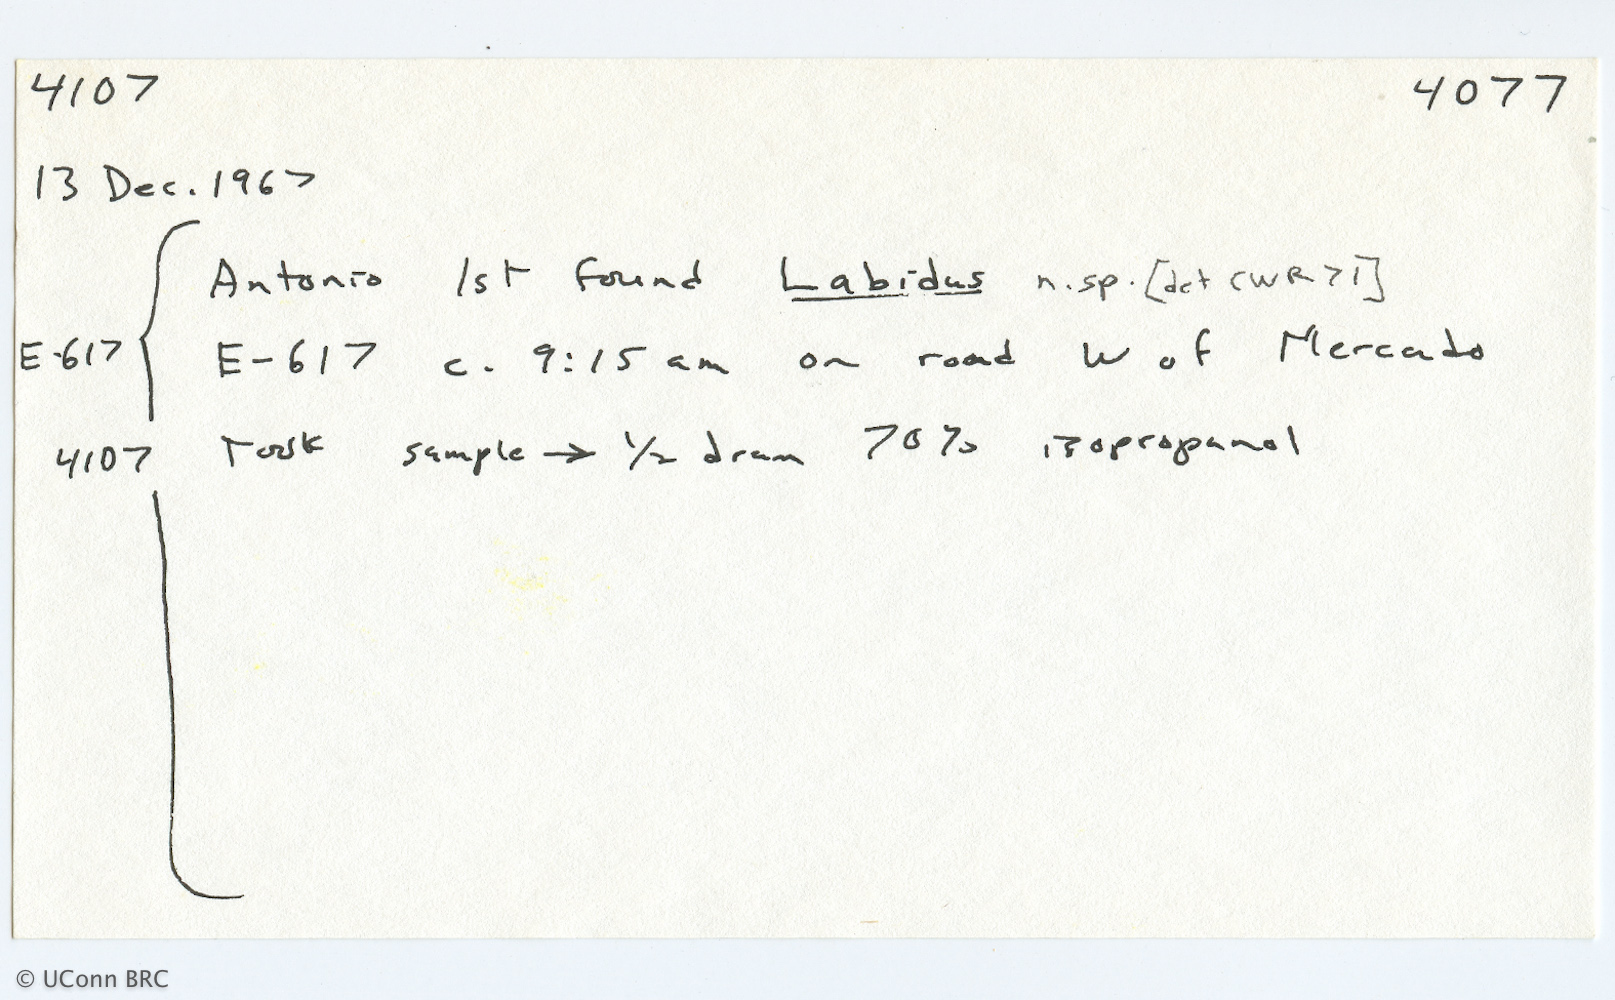 4107 4077
13 Dec. 1967
Antonio 1st found Labidus n.sp. [det CWR 71]
E-617 E-617 c. 9:15 am on road W of Mercado
4107 Took sample → 1/2 dram 70% isopropanol
© UConn BRC